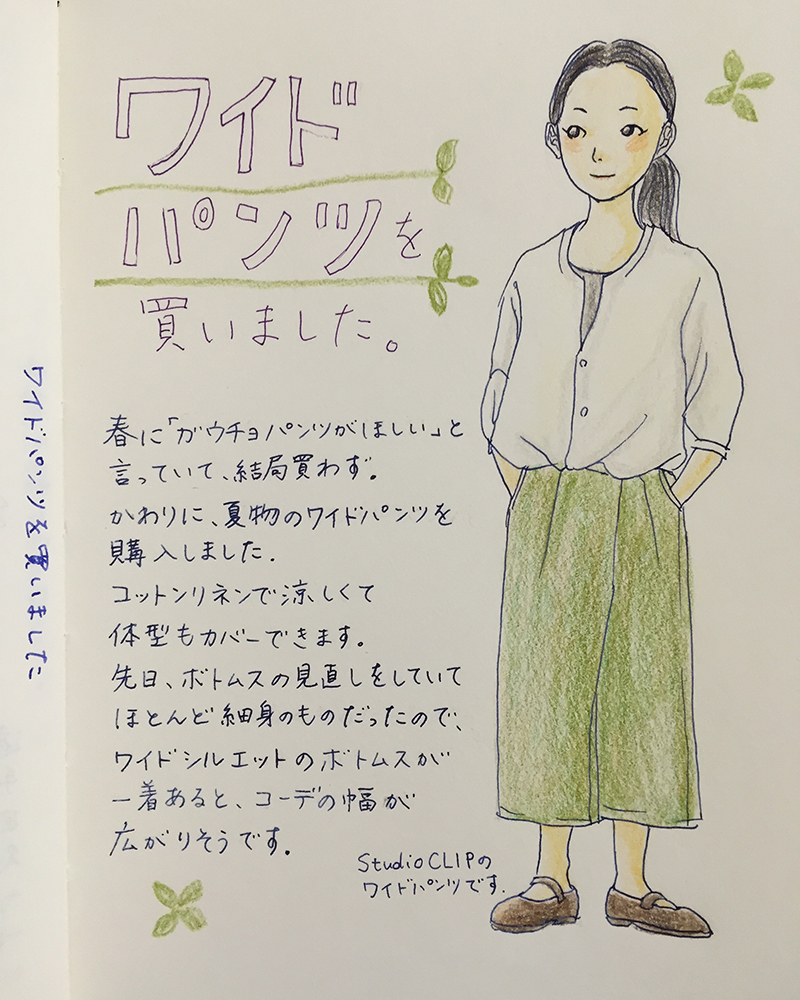 ワイド
パンツを
買いました。
春に「ガウチョパンツがほしい」と
言っていて、結局買わず。
かわりに、夏物のワイドパンツを
購入しました.
コットンリネンで涼しくて
体型もカバーできます。
先日、ボトムスの見直しをしていて
ほとんど細身のものだったので、
ワイドシルエットのボトムスが
一着あると、コーデの幅が
広がりそうです.
Studio CLIPの
ワイドパンツです.
ワイドパンツを買いました